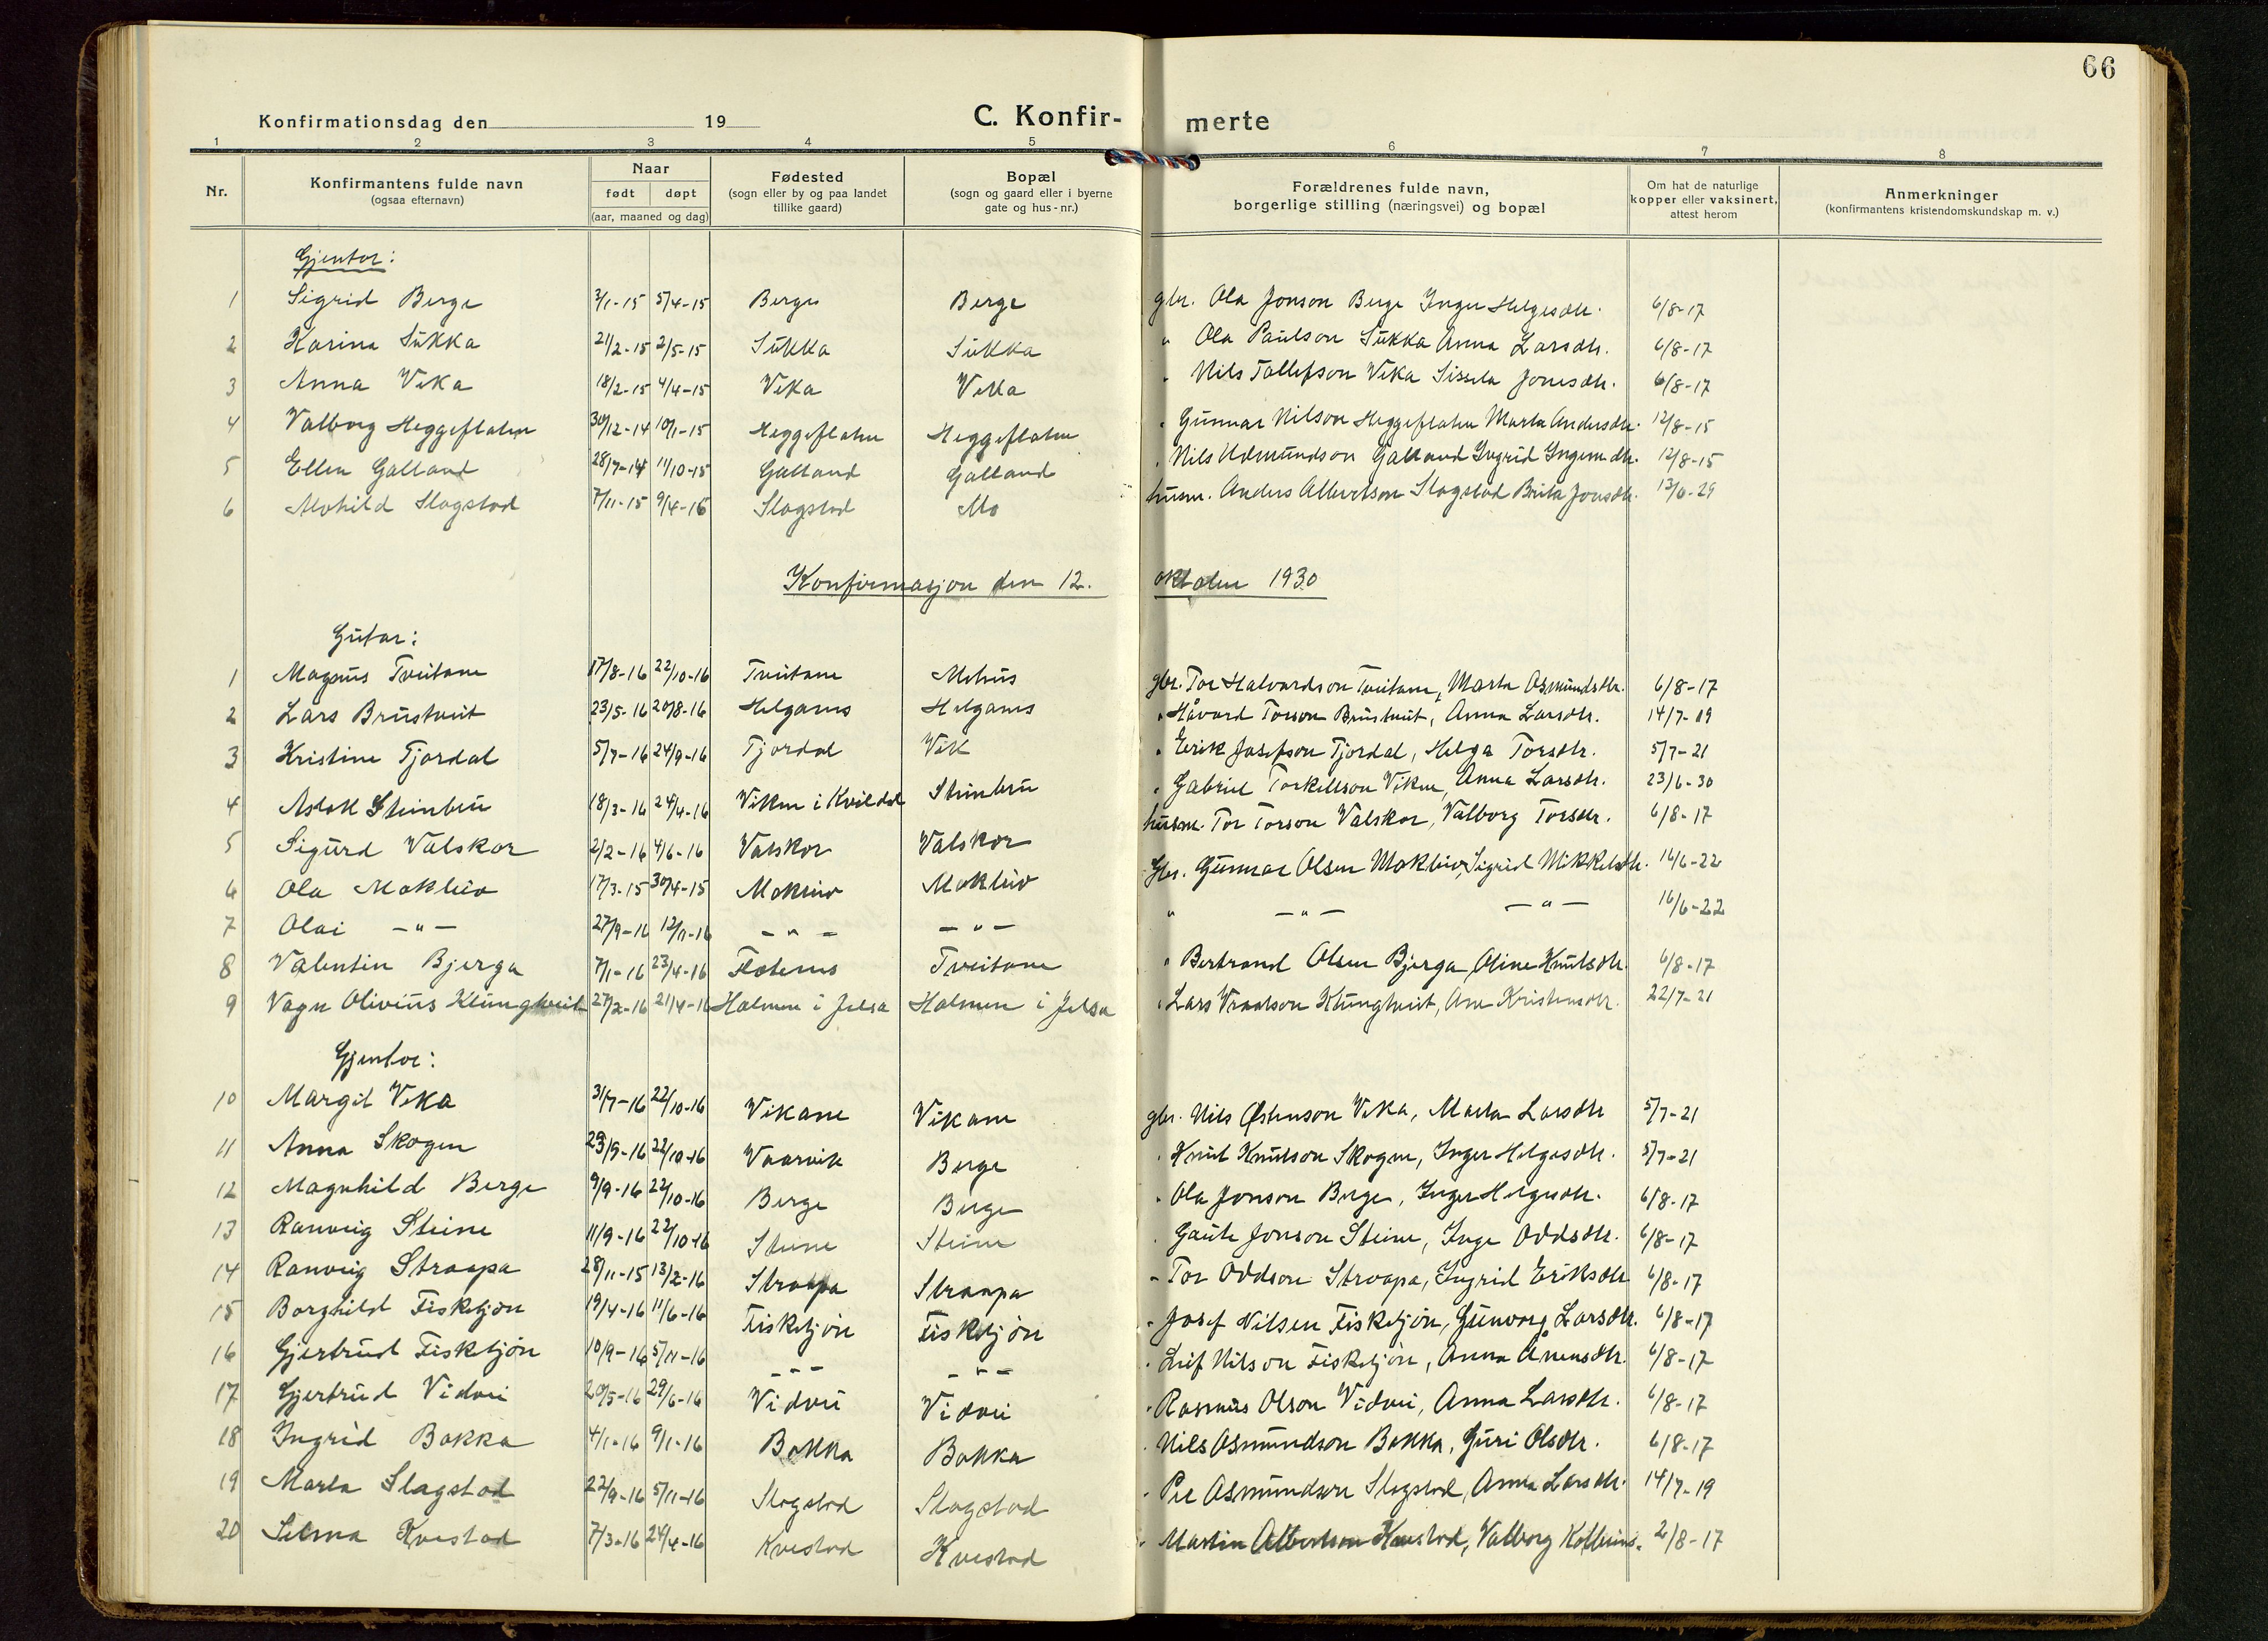 66
Konfirmationsdag den 19 C. Konfir- merte
1 2 3 4 5 6 7 8
Nr. Konfirmantens fulde navn (ogsaa efternavn) Naar født døpt (aar, maaned og dag) Fødested (sogn eller by og paa landet tillike gaard) Bopæl (sogn og gaard eller i byerne gate og hus-nr.) Forældrenes fulde navn, borgerlige stilling (næringsvei) og bopæl Om hat de naturlige kopper eller vaksinert, attest herom Anmerkninger (konfirmantens kristendomskundskap m. v.)
Gjentor:
1 Sigrid Berge 3/1-15 5/4-15 Berge Berge gbr. Ola Jonson Berge Inger Helgesdtr. 6/8-17
2 Karina Sukka 21/2-15 2/5-15 Sukka Sukka " Ola Paulson Sukka Anna Larsdtr. 6/8-17
3 Anna Vika 18/2-15 4/4-15 Vika Vika " Nils Tollefson Vika Sissela Jonesdtr. 6/8-17
4 Valborg Heggeflaten 30/12-14 10/1-15 Heggeflaten Heggeflaten " Gunnar Nilson Heggeflaten Marta Andersdtr. 12/8-15
5 Ellen Galland 28/7-14 11/10-15 Galland Galland " Nils Udmundson Galland Ingrid 12/8-15
6 Slagstad 7/11-15 9/4-16 Slagstad Mo husm. Anders Albertson Slagstad Brita Jonsdtr. 13/6-29
Konfirmasjon den 12. oktober 1930
Gutar:
1 Magnus Tveitane 17/8-16 22/10-16 Tveitane Mehus gbr. Tor Halvardson Tveitane, Marta Osmundsdtr. 6/8-17
2 Lars Brustveit 23/5-16 20/8-16 Helganes Helganes " Håvard Torson Brustveit, Anna Larsdtr. 14/7-19
3 Kristine Tjordal 5/7-16 24/9-16 Tjordal Vik " Eirik Josefson Tjordal, Helga Torsdtr. 5/7-21
4 Aslak Steinbru 18/3-16 24/4-16 Viken i Kvildal Steinbru " Gabriel Torkellson Viken, Anna Larsdtr. 23/6-30
5 Sigurd Valskor 2/2-16 4/6-16 Valskor Valskor husm. Tor Torson Valskor, Valborg Torsdtr. 6/8-17
6 Ola Mokleiv 17/3-15 30/4-15 Mokleiv Mokleiv Gbr. Gunnar Olsen Mokleiv, Sigrid Mikkelsdtr. 16/6-22
7 Olai -"- 27/9-16 12/11-16 -"- -"- " -"- -"- 16/6-22
8 Valentin Bjerga 7/1-16 23/4-16 Tveitane " Bertrand Olsen Bjerga, Oline Knutsdtr. 6/8-17
9 Vagn Olivius Klungtveit 27/2-16 21/4-16 Holmen i Jelsa Holmen i Jelsa " Lars Vraalson Klungtveit, Ane Kristensdtr. 22/7-21
Gjentor:
10 Margit Vika 31/7-16 22/10-16 Vikane Vikane gbr. Nils Østenson Vika, Marta Larsdtr 5/7-21
11 Anna Skogen 23/9-16 22/10-16 Vaarvik Berge " Knut Knutson Skogen, Inger Helgesdtr. 5/7-21
12 Magnhild Berge 9/9-16 22/10-16 Berge Berge " Ola Jonson Berge, Inger Helgesdtr. 6/8-17
13 Ranveig Steine 11/9-16 22/10-16 Steine Steine " Gaute Jonson Steine, Inge Oddsdtr. 6/8-17
14 Ranveig Straapa 28/11-15 13/2-16 Straapa Straapa " Tor Oddson Straapa, Ingrid Eiriksdtr 6/8-17
15 Borghild Fisketjøn 19/4-16 11/6-16 Fisketjøn Fisketjøn " Josef Nilsen Fisketjøn, Gunvorg Larsdtr. 6/8-17
16 Gjertrud Fisketjøn 10/9-16 5/11-16 -"- -"- " Leif Nilson Fisketjøn, Anna Ånensdtr. 6/8-17
17 Gjertrud Vidvei 20/5-16 29/6-16 Vidvei Vidvei " Rasmus Olson Vidvei, Anna Larsdtr. 6/8-17
18 Ingrid Bakka 4/1-16 9/1-16 Bakka Bakka " Nils Osmundson Bakka, Guri Olsdtr. 6/8-17
19 Marta Slagstad 22/9-16 5/11-16 Slagstad Slagstad " Per Osmundson Slagstad, Anna Larsdtr. 14/7-19
20 Selma Kvestad 7/3-16 24/4-16 Kvestad Kvestad " Martin Albertson Kvestad, Valborg 2/8-17